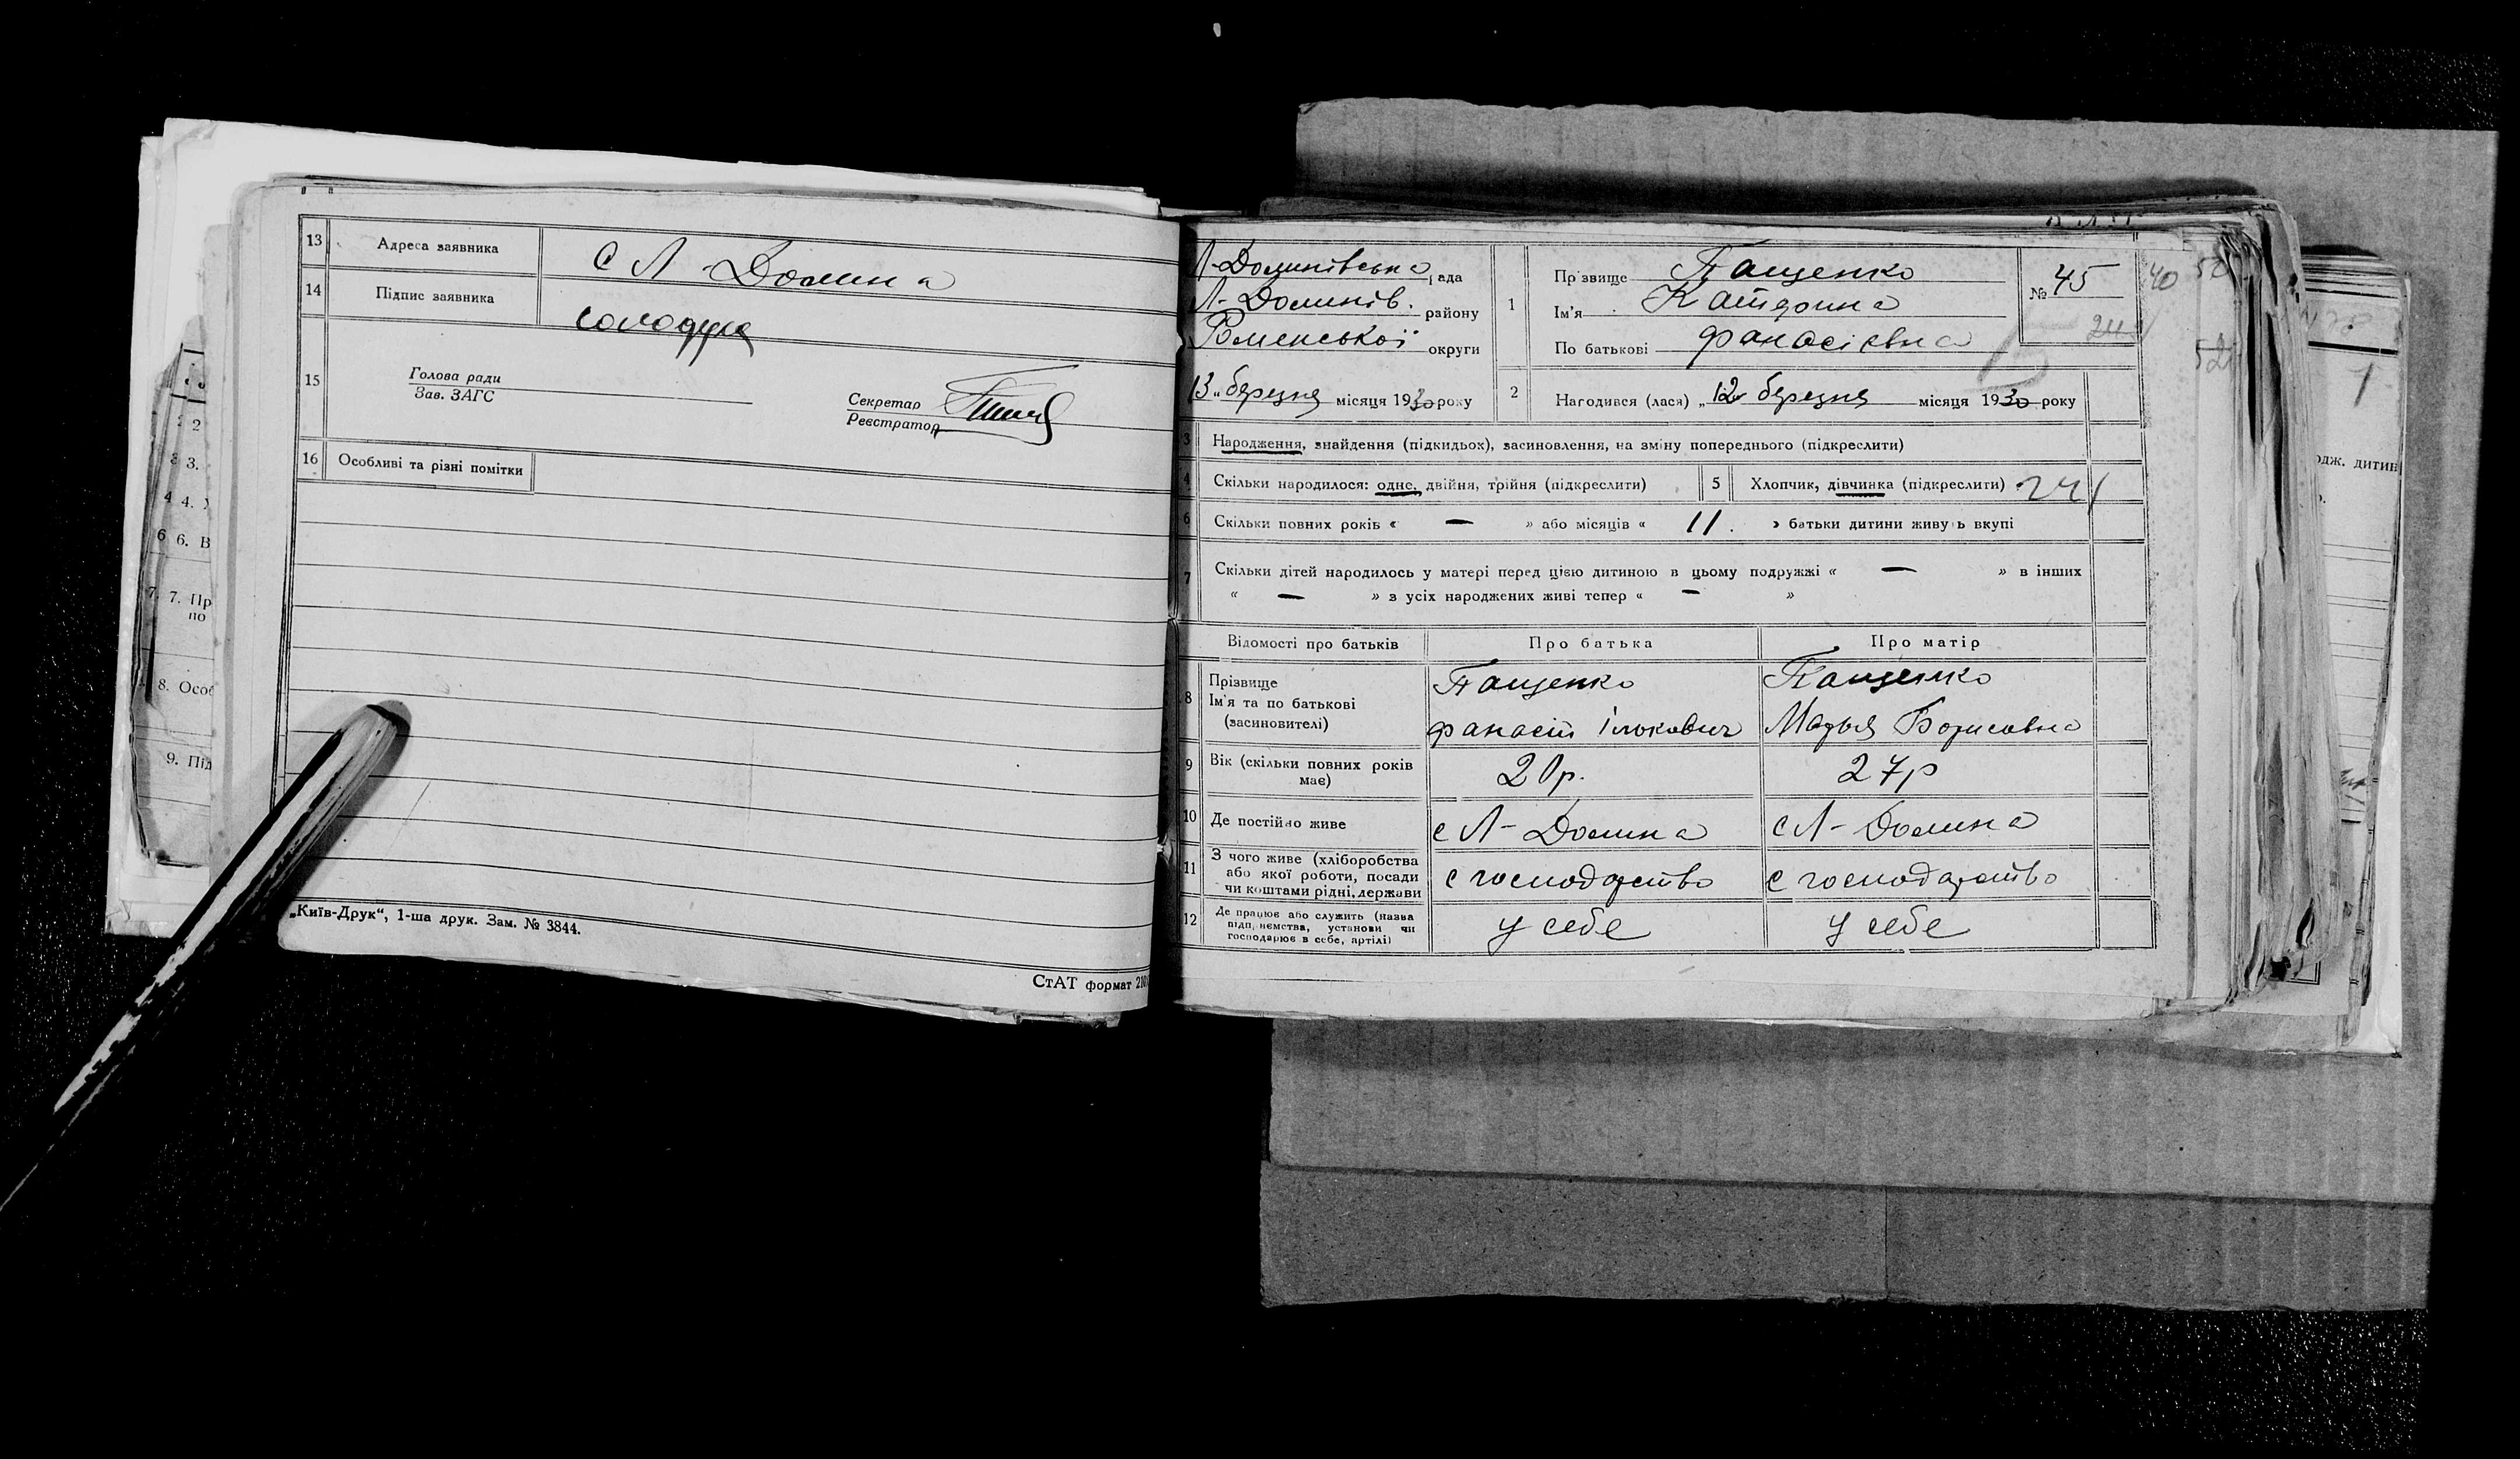 13 Адреса заявника С Л-Долина
14 Підпис заявника Солодуха
15 Голова ради
Зав. ЗАГС
Секретар
Реєстратор
16 Особливі та різні помітки
„Київ-Друк“, 1-ша друк. Зам. № 3844.
СтАТ формат 210
Л-Долинівська рада
Л-Долинів. району
Роменської округи
13 „ березня місяця 1930 року
1 Прізвище Пащенко
Ім'я Катерина
По батькові Фанасієвна
№ 45
40
52
2 Народився (лася) „ 12 березня місяця 1930 року
3 Народження, знайдення (підкидьох), засиновлення, на зміну попереднього (підкреслити)
4 Скільки народилося: одне, двійня, трійня (підкреслити)
5 Хлопчик, дівчинка (підкреслити) 241
6 Скільки повних років « — » або місяців « 11. » батьки дитини живуть вкупі
7 Скільки дітей народилось у матері перед цією дитиною в цьому подружжі « — » в інших
« — » з усіх народжених живі тепер « — »
Відомості про батьків Про батька Про матір
8 Прізвище Ім'я та по батькові (засиновителі)
Пащенко Фанасій Ількович
Пащенко Марья Борисовна
9 Вік (скільки повних років має) 20р. 27р
10 Де постійно живе с Л-Долина с Л-Долина
11 З чого живе (хліборобства або якої роботи, посади чи коштами рідні, держави
с господарство с господарство
12 Де працює або служить (назва підприємства, установи чи господарює в себе, артілі)
у себе у себе
2
3.
4.
6. В
7. Пр
по
8. Осоf
9. Під
одж. дитин